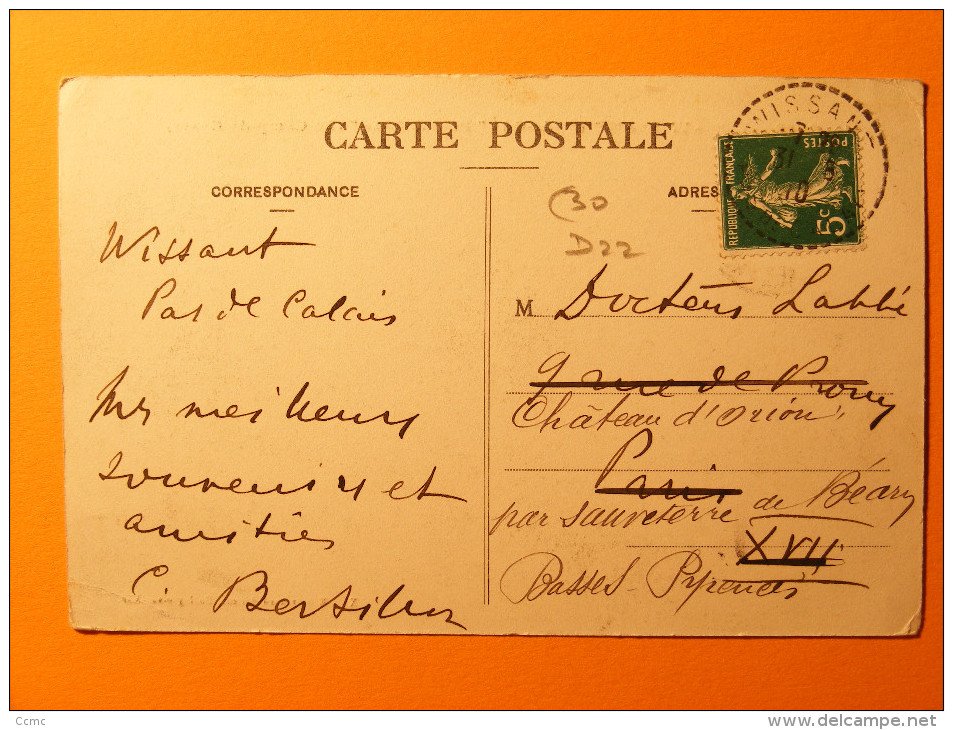 CARTE POSTALE
CORRESPONDANCE
ADRES
WISSANT
31 8
10
REPUBLIQUE FRANÇAISE
POSTES
5c
30
D22
Wissant
Pas de Calais
Mes meilleurs
souvenirs et
amitiés
M Docteur Labbé
9 rue de Prony
Château d'Orion
Paris
par Sauveterre de Béarn
XVII
Basses-Pyrenées
Ccmc
www.delcampe.net